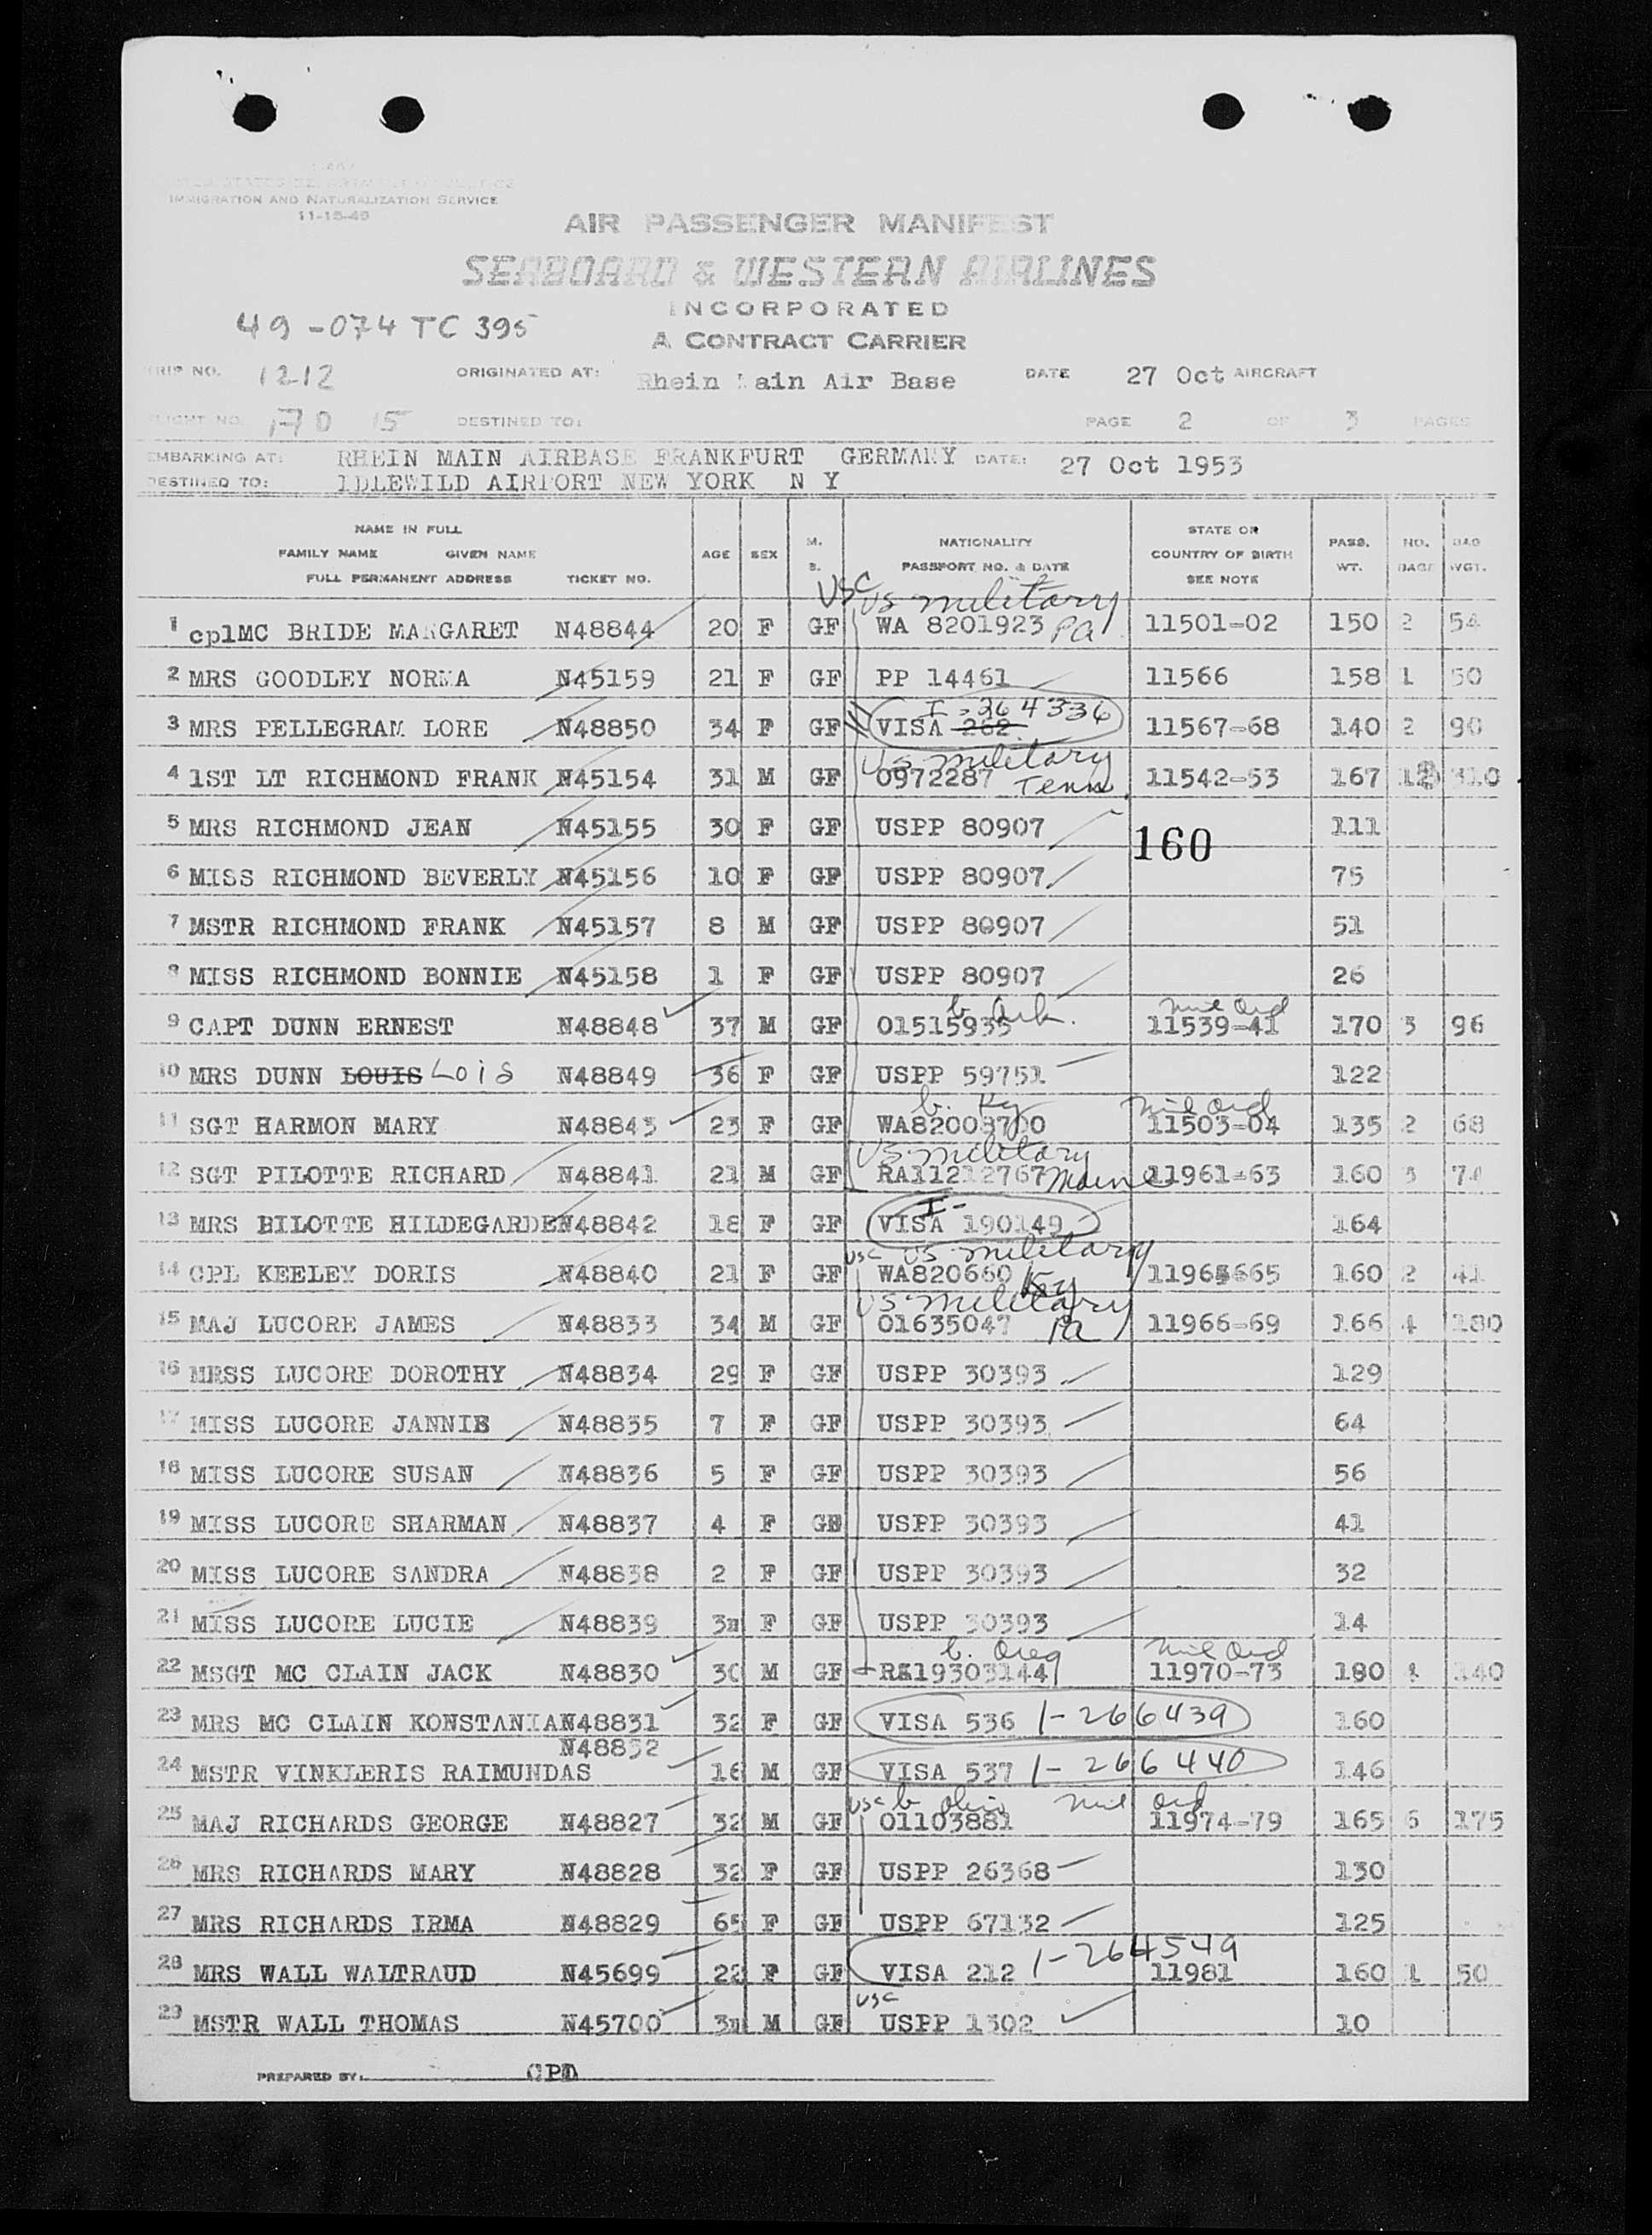 IMMIGRATION AND NATURALIZATION SERVICE
11-15-49
AIR PASSENGER MANIFEST
SEABOARD & WESTERN AIRLINES
INCORPORATED
49-074 TC 395
A CONTRACT CARRIER
TRIP NO. 1212 ORIGINATED AT: Rhein Main Air Base DATE 27 Oct AIRCRAFT
FLIGHT NO. 15 DESTINED TO: PAGE 2 OF 3 PAGES
EMBARKING AT: RHEIN MAIN AIRBASE FRANKFURT GERMANY DATE: 27 Oct 1953
DESTINED TO: IDLEWILD AIRPORT NEW YORK N Y
NAME IN FULL
FAMILY NAME GIVEN NAME
FULL PERMANENT ADDRESS TICKET NO. AGE SEX M. S. NATIONALITY PASSPORT NO. & DATE STATE OR COUNTRY OF BIRTH SEE NOTE PASS. WT. NO. BAGS BAG WGT.
USC US military
1 cplMC BRIDE MARGARET N48844 20 F GF WA 8201923 Pa 11501-02 150 2 54
2 MRS GOODLEY NORMA N45159 21 F GF PP 14461 11566 158 1 50
I-264336
3 MRS PELLEGRAM LORE N48850 34 F GF VISA 262 11567-68 140 2 90
US military
4 1ST LT RICHMOND FRANK N45154 31 M GF 0972287 Tenn. 11542-53 167 12 310
5 MRS RICHMOND JEAN N45155 30 F GF USPP 80907 111
160
6 MISS RICHMOND BEVERLY N45156 10 F GF USPP 80907 75
7 MSTR RICHMOND FRANK N45157 8 M GF USPP 80907 51
8 MISS RICHMOND BONNIE N45158 1 F GF USPP 80907 26
b. Ark. mil Ord
9 CAPT DUNN ERNEST N48848 37 M GF 01515935 11539-41 170 3 96
10 MRS DUNN LOUIS Lois N48849 36 F GF USPP 59751 122
b. Ky mil Ord
11 SGT HARMON MARY N48843 23 F GF WA82003700 11503-04 135 2 68
US military
12 SGT PILOTTE RICHARD N48841 21 M GF RA11212767 Maine 11961-63 160 3 74
I-
13 MRS BILOTTE HILDEGARDE N48842 18 F GF VISA 190149 164
USC US military
14 CPL KEELEY DORIS N48840 21 F GF WA820660 Ky 11964665 160 2 41
US military
15 MAJ LUCORE JAMES N48833 34 M GF 01635047 Pa 11966-69 166 4 180
16 MRSS LUCORE DOROTHY N48834 29 F GF USPP 30393 129
17 MISS LUCORE JANNIE N48835 7 F GF USPP 30393 64
18 MISS LUCORE SUSAN N48836 5 F GF USPP 30393 56
19 MISS LUCORE SHARMAN N48837 4 F GF USPP 30393 41
20 MISS LUCORE SANDRA N48838 2 F GF USPP 30393 32
21 MISS LUCORE LUCIE N48839 3m F GF USPP 30393 14
b. Oreg mil Ord
22 MSGT MC CLAIN JACK N48830 30 M GF RA19303144 11970-73 180 4 140
23 MRS MC CLAIN KONSTANIA N48831 32 F GF VISA 536 1-266439 160
N48832
24 MSTR VINKLERIS RAIMUNDAS 16 M GF VISA 537 1-266440 146
USC b. Ohio mil Ord
25 MAJ RICHARDS GEORGE N48827 32 M GF 01103881 11974-79 165 6 175
26 MRS RICHARDS MARY N48828 32 F GF USPP 26368 130
27 MRS RICHARDS IRMA N48829 65 F GF USPP 67132 125
1-264549
28 MRS WALL WALTRAUD N45699 22 F GF VISA 212 11981 160 1 50
USC
29 MSTR WALL THOMAS N45700 3m M GF USPP 1302 10
PREPARED BY: CPD